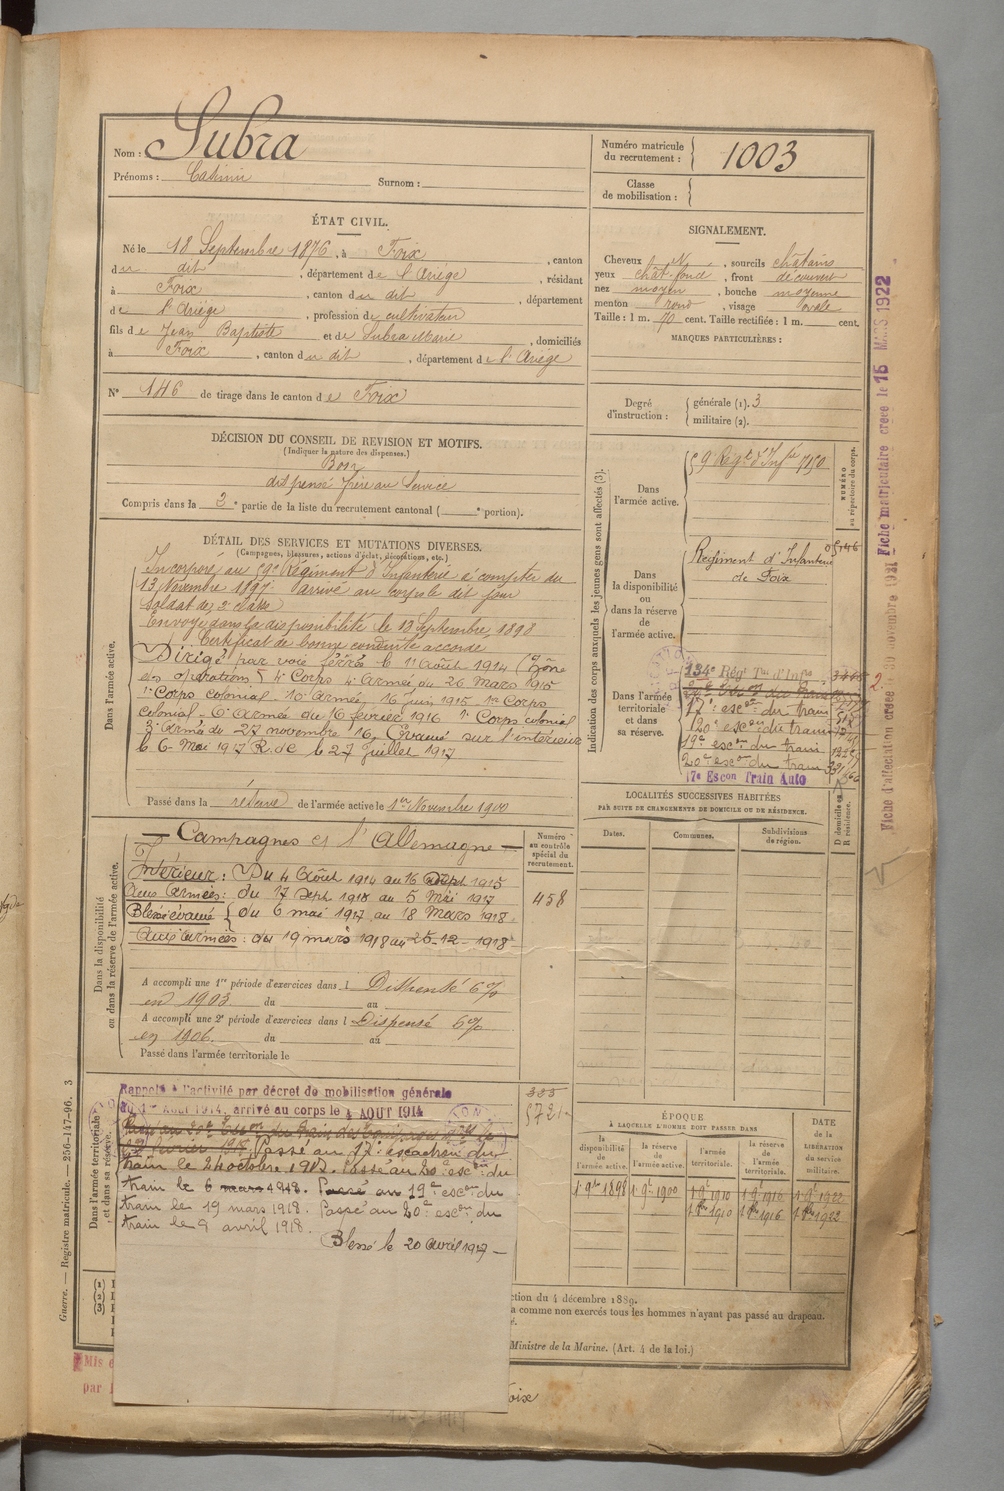 Nom : Subra
Prénoms : Casimir Surnom :
Numéro matricule du recrutement : 1003
Classe de mobilisation :
ÉTAT CIVIL.
Né le 18 Septembre 1876, à Foix, canton
du dit, département de l'Ariège, résidant
à Foix, canton du dit, département
de l'Ariège, profession de cultivateur
fils de Jean Baptiste et de Subra Marie, domiciliés
à Foix, canton du dit, département de l'Ariège
N° 146 de tirage dans le canton de Foix
SIGNALEMENT.
Cheveux N, sourcils châtains
yeux chât. foncé, front découvert
nez moyen, bouche moyenne
menton rond, visage ovale
Taille : 1 m. 70 cent. Taille rectifiée : 1 m. cent.
MARQUES PARTICULIÈRES :
Degré d'instruction : générale (1). 3
militaire (2).
DÉCISION DU CONSEIL DE REVISION ET MOTIFS.
(Indiquer la nature des dispenses.)
Bon
dispensé frère au Service
Compris dans la 3e partie de la liste du recrutement cantonal ( e portion).
DÉTAIL DES SERVICES ET MUTATIONS DIVERSES.
(Campagnes, blessures, actions d'éclat, décorations, etc.)
Dans l'armée active.
Incorporé au 59e Régiment d'Infanterie à compter du
13 Novembre 1897 arrivé au corps le dit jour
Soldat de 2e classe
Envoyé dans la disponibilité le 13 Septembre 1898
Certificat de bonne conduite accordé
Dirigé par voie ferrée le 11 Août 1914 (Zône
des opérations) 4e Corps 4e Armée du 26 Mars 1915
1er Corps colonial. 10e Armée 16 Juin 1915 1er Corps
colonial 6e Armée du 16 février 1916 1er Corps colonial
3e Armée du 27 novembre 16. Evacué sur l'intérieur
le 6 Mai 1917 R. de le 27 Juillet 1917
Passé dans la réserve de l'armée active le 1er Novembre 1900
Indication des corps auxquels les jeunes gens sont affectés (3).
NUMÉRO au répertoire du corps.
Dans l'armée active.
59 Régt d'Infie 7150
Dans la disponibilité ou dans la réserve de l'armée active.
Régiment d'Infanterie
de Foix
Dans l'armée territoriale et dans sa réserve.
134e Régt Tal d'Infie
17e escon du train
20e escon du train
19e escon du train
20e escon du train
17e Escon Train Auto
LOCALITÉS SUCCESSIVES HABITÉES
PAR SUITE DE CHANGEMENTS DE DOMICILE OU DE RÉSIDENCE.
Dates. Communes. Subdivisions de région. D domicile ou R résidence.
Dans la disponibilité ou dans la réserve de l'armée active.
Numéro au contrôle spécial du recrutement.
458
Campagnes c/ l'Allemagne
Intérieur : Du 4 Août 1914 au 16 Sept 1915
Aux Armées : du 17 Sept 1915 au 5 Mai 1917
Blessé évacué du 6 mai 1917 au 18 Mars 1918
Aux armées : du 19 mars 1918 au 25-12-1918
A accompli une 1re période d'exercices dans l Dispensé 6%
en 1903 du au
A accompli une 2e période d'exercices dans l Dispensé 6%
en 1906 du au
Passé dans l'armée territoriale le
Dans l'armée territoriale et dans sa réserve.
Rappelé à l'activité par décret de mobilisation générale
du 1er Août 1914, arrivé au corps le 4 AOUT 1914
Passé au 17e escadron du
train le 24 octobre 1917. Passé au 20e escon du
train le 6 mars 1918. Passé au 19e escon du
train le 19 mars 1918. Passé au 20e escon du
train le 9 avril 1918.
Blessé le 20 avril 1917
385
ÉPOQUE
À LAQUELLE L'HOMME DOIT PASSER DANS
la disponibilité de l'armée active. la réserve de l'armée active. l'armée territoriale. la réserve de l'armée territoriale. DATE de la LIBÉRATION du service militaire.
1 9bre 1898 1 9bre 1900 1 9bre 1910 1 9bre 1916 1 9bre 1922
1910 1916 1922
ction du 4 décembre 1889.
a comme non exercés tous les hommes n'ayant pas passé au drapeau.
Ministre de la Marine. (Art. 4 de la loi.)
Guerre. — Registre matricule. — 256-147-96. 3
Fiche matriculaire créée le 15 MARS 1922
Mis
par